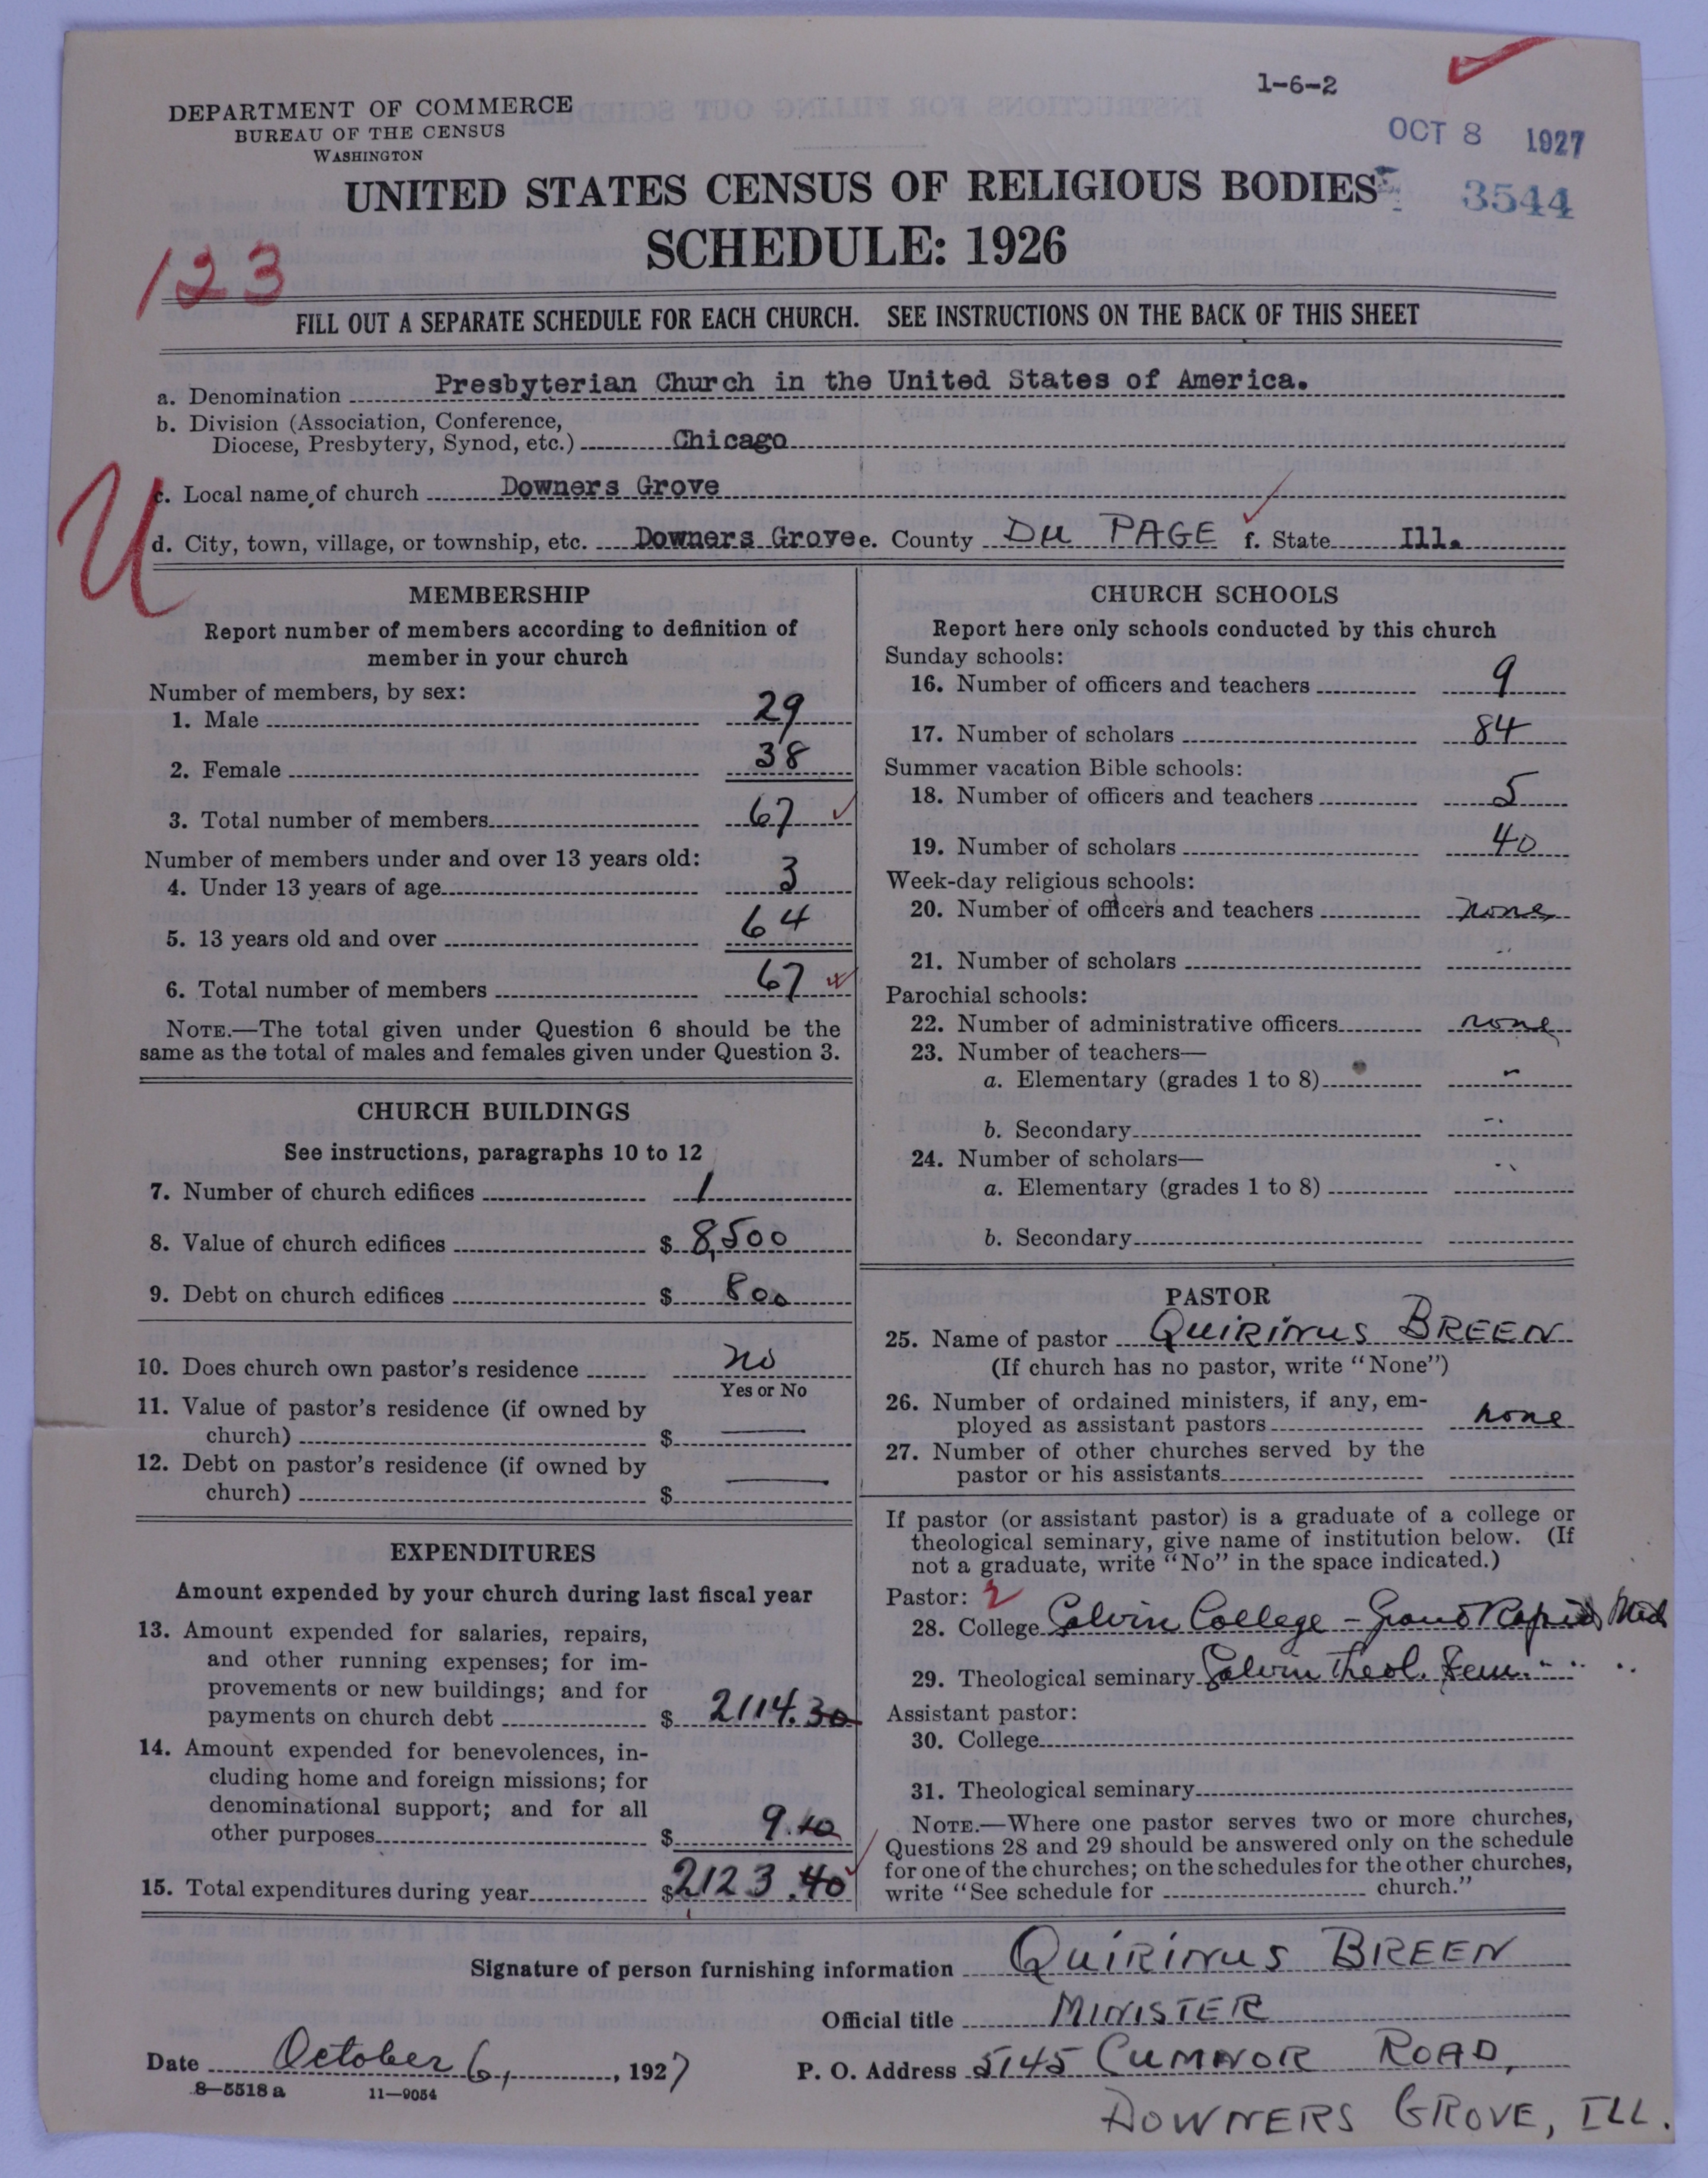 1-6-2
DEPARTMENT OF COMMERCE
BUREAU OF THE CENSUS
WASHINGTON
OCT 8 1927
UNITED STATES CENSUS OF RELIGIOUS BODIES
3544
SCHEDULE: 1926
123
FILL OUT A SEPARATE SCHEDULE FOR EACH CHURCH. SEE INSTRUCTIONS ON THE BACK OF THIS SHEET
a. Denomination Presbyterian Church in the United States of America.
b. Division (Association, Conference,
Diocese, Presbytery, Synod, etc.) Chicago
U
c. Local name of church Downers Grove
d. City, town, village, or township, etc. Downers Grove e. County DU PAGE f. State Ill.
MEMBERSHIP
Report number of members according to definition of
member in your church
Number of members, by sex:
1. Male 29
2. Female 38
3. Total number of members 67
Number of members under and over 13 years old:
4. Under 13 years of age 3
5. 13 years old and over 64
6. Total number of members 67
NOTE.—The total given under Question 6 should be the
same as the total of males and females given under Question 3.
CHURCH BUILDINGS
See instructions, paragraphs 10 to 12
7. Number of church edifices 1
8. Value of church edifices $ 8,500
9. Debt on church edifices $ 800
10. Does church own pastor's residence no
Yes or No
11. Value of pastor's residence (if owned by
church) $ —
12. Debt on pastor's residence (if owned by
church) $ —
EXPENDITURES
Amount expended by your church during last fiscal year
13. Amount expended for salaries, repairs,
and other running expenses; for im-
provements or new buildings; and for
payments on church debt $ 2114.30
14. Amount expended for benevolences, in-
cluding home and foreign missions; for
denominational support; and for all
other purposes $ 9.10
15. Total expenditures during year $ 2123.40
CHURCH SCHOOLS
Report here only schools conducted by this church
Sunday schools:
16. Number of officers and teachers 9
17. Number of scholars 84
Summer vacation Bible schools:
18. Number of officers and teachers 5
19. Number of scholars 40
Week-day religious schools:
20. Number of officers and teachers none
21. Number of scholars "
Parochial schools:
22. Number of administrative officers none
23. Number of teachers—
a. Elementary (grades 1 to 8) "
b. Secondary "
24. Number of scholars— "
a. Elementary (grades 1 to 8)
b. Secondary
PASTOR
25. Name of pastor QUIRINUS BREEN
(If church has no pastor, write "None")
26. Number of ordained ministers, if any, em-
ployed as assistant pastors none
27. Number of other churches served by the
pastor or his assistants
If pastor (or assistant pastor) is a graduate of a college or
theological seminary, give name of institution below. (If
not a graduate, write "No" in the space indicated.)
Pastor: 2
28. College Calvin College - Grand Rapids Mich
29. Theological seminary Calvin Theol. Sem. " " "
Assistant pastor:
30. College
31. Theological seminary
NOTE.—Where one pastor serves two or more churches,
Questions 28 and 29 should be answered only on the schedule
for one of the churches; on the schedules for the other churches,
write "See schedule for church."
Signature of person furnishing information QUIRINUS BREEN
Official title MINISTER
Date October 6, 1927 P. O. Address 5145 CUMNOR ROAD,
8—5518 a 11—9054
DOWNERS GROVE, ILL.